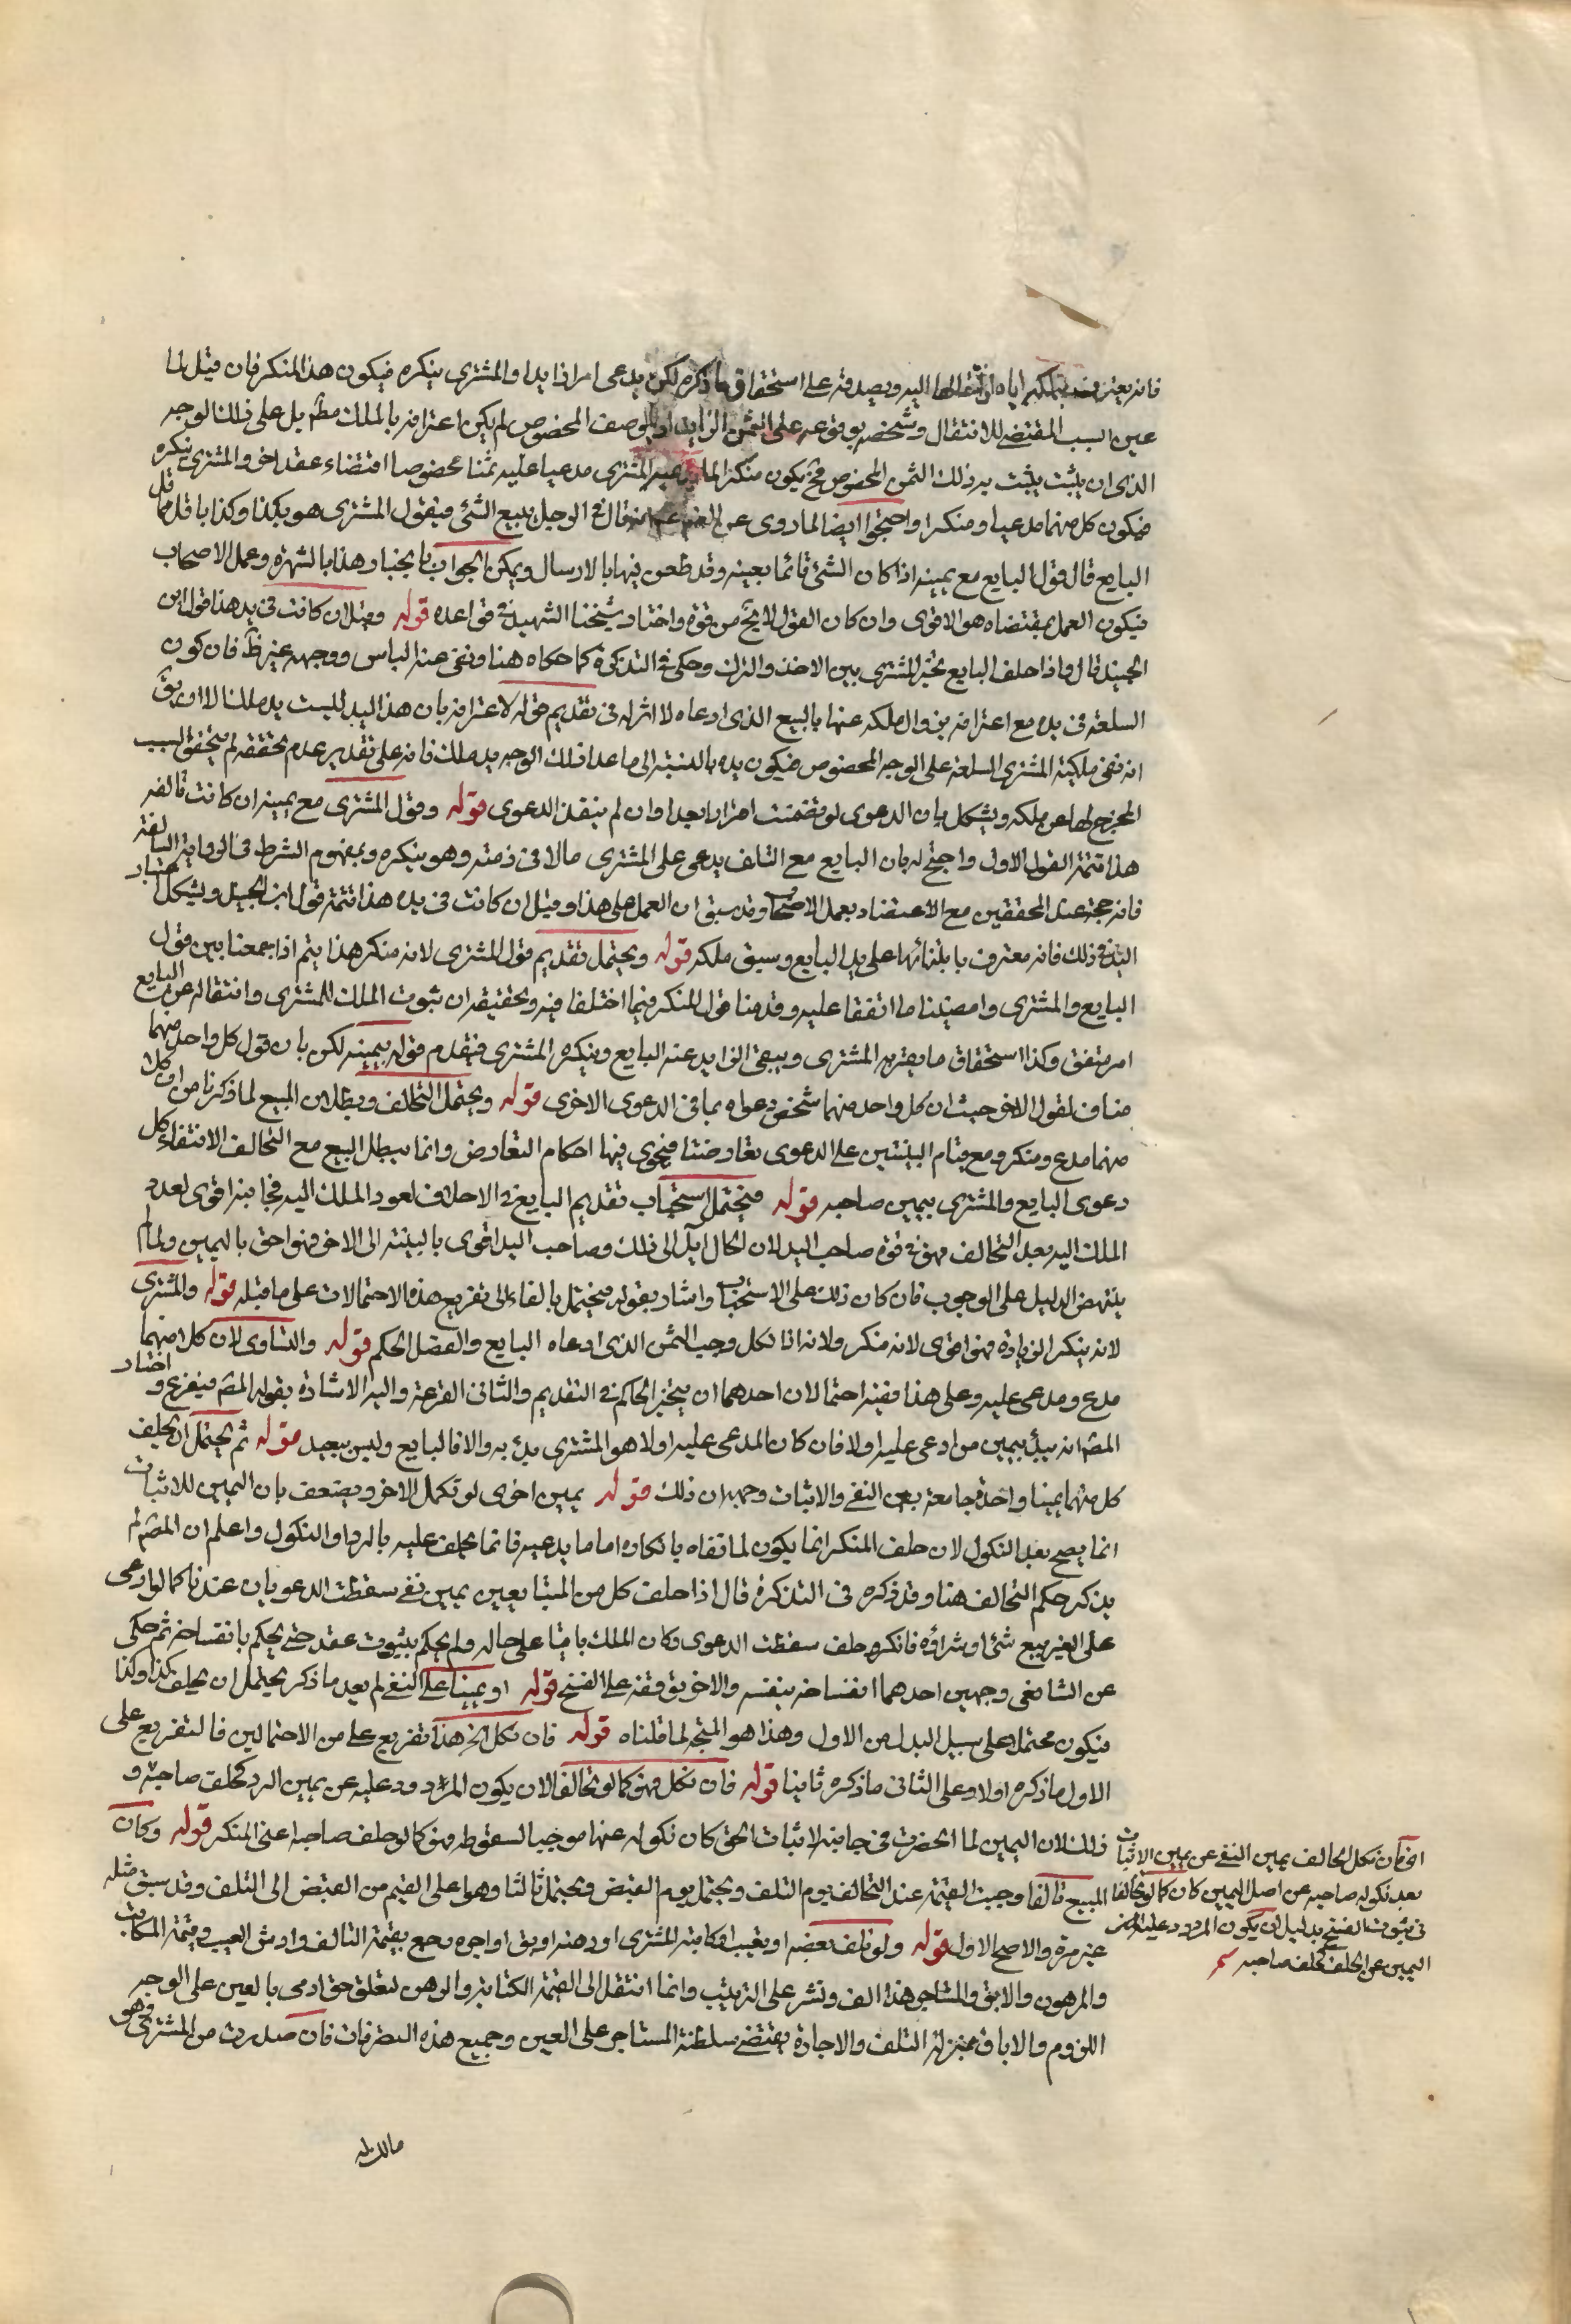 فانه يعترف بتملكه اياه وانتقالها اليه ويصدقه على استحقاق ما ذكره لكن يدعى امرا زايدا والمشترى ينكره فيكون هذا المنكر فان قيل لما
عين السبب المقتضى للانتقال وشخصه بوقوعه على الثمن الزايد او بالوصف المخصوص لم يكن اعترافه بالملك مطم بل على ذلك الوجه
الذى ان يثبت يثبت به ذلك الثمن المخصوص فح يكون منكرا لما يدعيه المشترى مدعيا عليه ثمنا مخصوصا اقتضاء عقد اخر والمشترى ينكره
فيكون كل منهما مدعيا ومنكرا واحتجوا ايضا لما روى عن انه قال فى الرجل يبيع الشئ فيقول المشترى هو بكذا وكذا باقل ما قال
البايع قال قول البايع مع يمينه اذا كان الشئ قائما بعينه وقد طعن فيها بالارسال ويمكن الجواب بانجبار هذا بالشهرة وعمل الاصحاب
فيكون العمل بمقتضاه هو الاقوى وان كان القول لا يخ من قوة واختار شيخنا الشهيد فى قواعده قوله وقيل ان كانت فى يده هذا قول ابن
الجنيد قال واذا حلف البايع تخير المشترى بين الاخذ والترك وحكى فى التذكرة كما حكاه هنا ونفى عنه الباس ووجهه غير ظ فان كون
السلعة فى يده مع اعترافه بزوال ملكه عنها بالبيع الذى ادعاه لا اثر له فى تقديم قوله لاعترافه بان هذا اليد ليست يد ملك الا ان يق
انه نفى ملكية المشترى السلعة على الوجه المخصوص فيكون يده بالنسبة الى ما عدا ذلك الوجه يد ملك فانه على تقدير عدم تحققه لم يتحقق السبب
المخرج لها عن ملكه ويشكل بان الدعوى لو تضمنت اقرارا بعدا وان لم ينفذ الدعوى قوله وقول المشترى مع يمينه ان كانت تالفه
هذا تتمة القول الاول واحتج له بان البايع مع التلف يدعى على المشترى مالا فى ذمته وهو ينكره وبمفهوم الشرط فى الرواية السالفة
فانه حجة عند المحققين مع الاعتضاد بعمل الاصحاب وقد سبق ان العمل على هذا وقيل ان كانت فى يده هذا تتمة قول ابن الجنيد ويشكل اعتبار
اليد فى ذلك فانه معترف بابتنائها على يد البايع وسبق ملكه قوله ويحتمل تقديم قول المشترى لانه منكر هذا يتم اذا جمعنا بين قول
البايع والمشترى وامضينا ما اتفقا عليه وقدمنا قول المنكر فيما اختلفا فيه وتحقيقه ان ثبوت الملك للمشترى وانتقاله عن البايع
امر متفق وكذا استحقاق ما يقر به المشترى ويبقى الزايد عنه البايع وينكره المشترى فيقدم قوله بيمينه لكن بان قول كل واحد منهما
مناف لقول الاخر حيث ان كل واحد منهما شخص دعواه بما فى الدعوى الاخرى قوله ويحتمل التحالف وبطلان البيع لما ذكرنا من ان كلا
منهما مدع ومنكر ومع قيام البينتين على الدعوى تعارضتا فيجرى فيها احكام التعارض وانما يبطل البيع مع التحالف لانتفاء كل
دعوى البايع والمشترى بيمين صاحبه قوله فيحتمل استحباب تقديم البايع فى الاحلاف لعود الملك اليه فجانبه اقوى لعود
الملك اليه بعد التحالف فهو فى قوة صاحب اليد لان الحال آيل الى ذلك وصاحب اليد اقوى بالبينة الى الاخر فهو احق باليمين ولما لم
ينهض الدليل على الوجوب فان كان ذلك على الاستحباب واشار بقوله فيحتمل بالفاء الى تفريع هذه الاحتمالات على ما قبله قوله والمشترى
لانه ينكر الزيادة فهو اقوى لانه منكر ولانه اذا نكل وجب الثمن الذى ادعاه البايع وانفصل الحكم قوله والتساوى لان كلا منهما
مدع ومدعى عليه وعلى هذا ففيه احتمالان احدهما ان يتخير الحاكم فى التقديم والثانى القرعة واليه الاشارة بقوله المص فيقرع واختار
المص انه يبدأ بيمين من ادعى عليه اولا فان كان المدعى عليه اولا هو المشترى بدئ به والا فالبايع وليس ببعيد قوله ثم يحتمل ان يحلف
كل منهما يمينا واحدة جامعة بين النفى والاثبات وجهه ان ذلك قوله يمين اخرى لو نكل الاخر ويضعف بان اليمين للاثبات
انما يصح بعد النكول لان حلف المنكر انما يكون لما نفاه بانكاره اما ما يدعيه فانما يحلف عليه بالرد او النكول واعلم ان المص لم
يذكر حكم التحالف هنا وقد ذكره فى التذكرة قال اذا حلف كل من المتبايعين يمين نفى سقطت الدعويان عندنا كما لو ادعى
على الغير بيع شئ او شراؤه فانكر وحلف سقطت الدعوى وكان الملك باقيا على حاله ولم يحكم بثبوت عقد حتى يحكم بانفساخه ثم حكى
عن الشافعى وجهين احدهما انفساخه بنفسه والاخر توقفه على الفسخ قوله او يمينا على النفى لم بعد ما ذكر يحتمل ان يحلف كذا وكذا
فيكون محتملا على سبيل البدل من الاول وهذا هو المتجه لما قلناه قوله فان نكل الخ هذا تفريع على من الاحتمالين فالتفريع على
الاول ما ذكره اولا وعلى الثانى ما ذكره ثانيا قوله فان نكل فهو كما لو تحالفا لان يكون المردود عليه عن يمين الرد كحلف صاحبه و
ذلك لان اليمين لما انحصرت فى جانبه لاثبات الحق كان نكوله عنها موجبا لسقوطه فهو كما لو حلف صاحبه اعنى المنكر قوله وكان
المبيع تالفا وجبت القيمة عند التحالف يوم التلف ويحتمل يوم القبض ويحتمل ثالثا وهو اعلى القيم من القبض الى التلف وقد سبق مثله
غير مرة والاصح الاول قوله ولو تلف بعضه او تعيب او كاتبه المشترى او رهنه او ابق او اجره رجع بقيمة التالف وارش العيب وقيمة المكاتب
والمرهون والابق والمستاجر هذا لف ونشر على الترتيب وانما انتقل الى القيمة الكتابة والرهن لتعلق حق ادمى بالعين على الوجه
اللزوم والاباق بمنزلة التلف والاجارة يقتضى سلطنة المستاجر على العين وجميع هذه التصرفات فان صدرت من المشترى وهو
اى فان نكل الحالف يمين النفى عن يمين الاثبات
بعد نكول صاحبه عن اصل اليمين كان كما لو تحالفا
فى ثبوت الفسخ بدليل ان يكون المردود عليه
اليمين عن الحلف كحلف صاحبه
مالك له